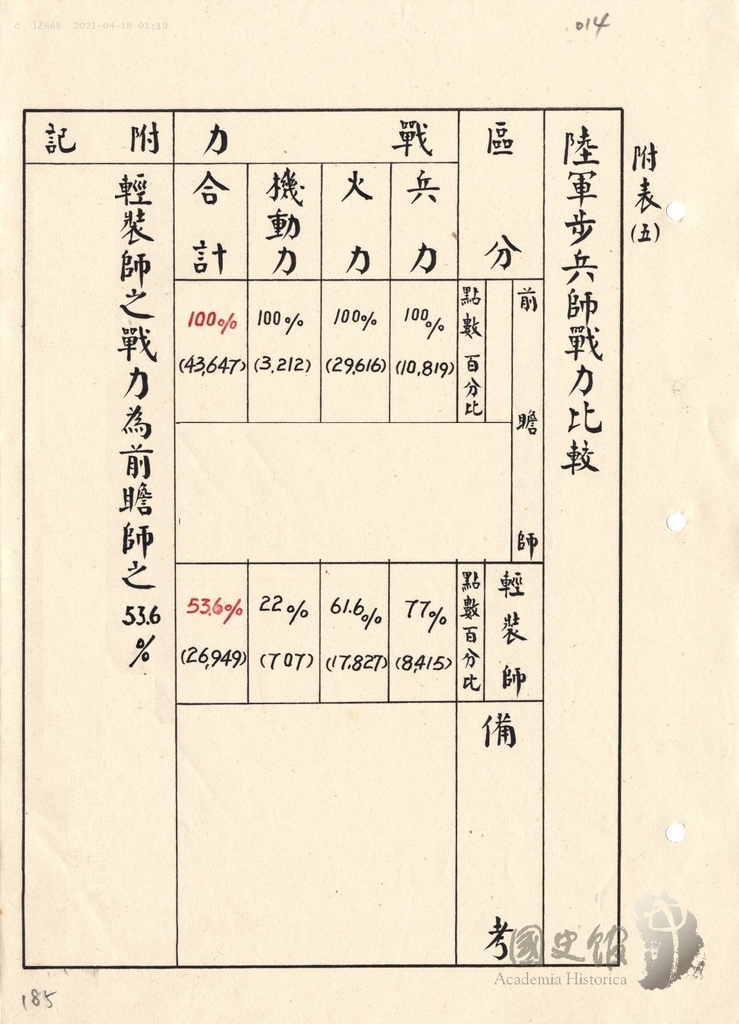 6 12668 2021-04-18 01:18
014
附表(五)
陸軍步兵師戰力比較
區分
前瞻師
點數百分比
輕裝師
點數百分比
備考
戰力
兵力
100%
(10,819)
77%
(8,415)
火力
100%
(29,616)
61.6%
(17,827)
機動力
100%
(3,212)
22%
(707)
合計
100%
(43,647)
53.6%
(26,949)
附記
輕裝師之戰力為前瞻師之53.6%
國史館
Academia Historica
185